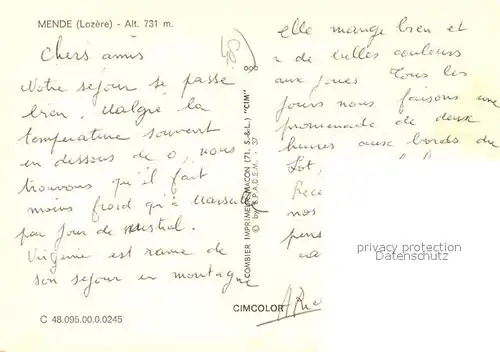 MENDE (Lozère) - Alt. 731 m.
Chers amis
Notre séjour se passe
bien. Malgré la
température souvent
en dessous de 0, nous
trouvons qu'il fait
moins froid qu'à Marseille
par jour de mistral.
Virginie est ravie de
son séjour en montagne
C 48.095.00.0.0245
COMBIER IMPRIMEUR MACON (71. S.-&-L.) "CIM"
© by S.P.A.D.E.M. 37
CIMCOLOR
elle mange bien et
a de belles couleurs
aux joues Tous les
jours nous faisons une
promenade de deux
heures aux bords du
Lot,
Rece
nos
pens
privacy protection
Datenschutz